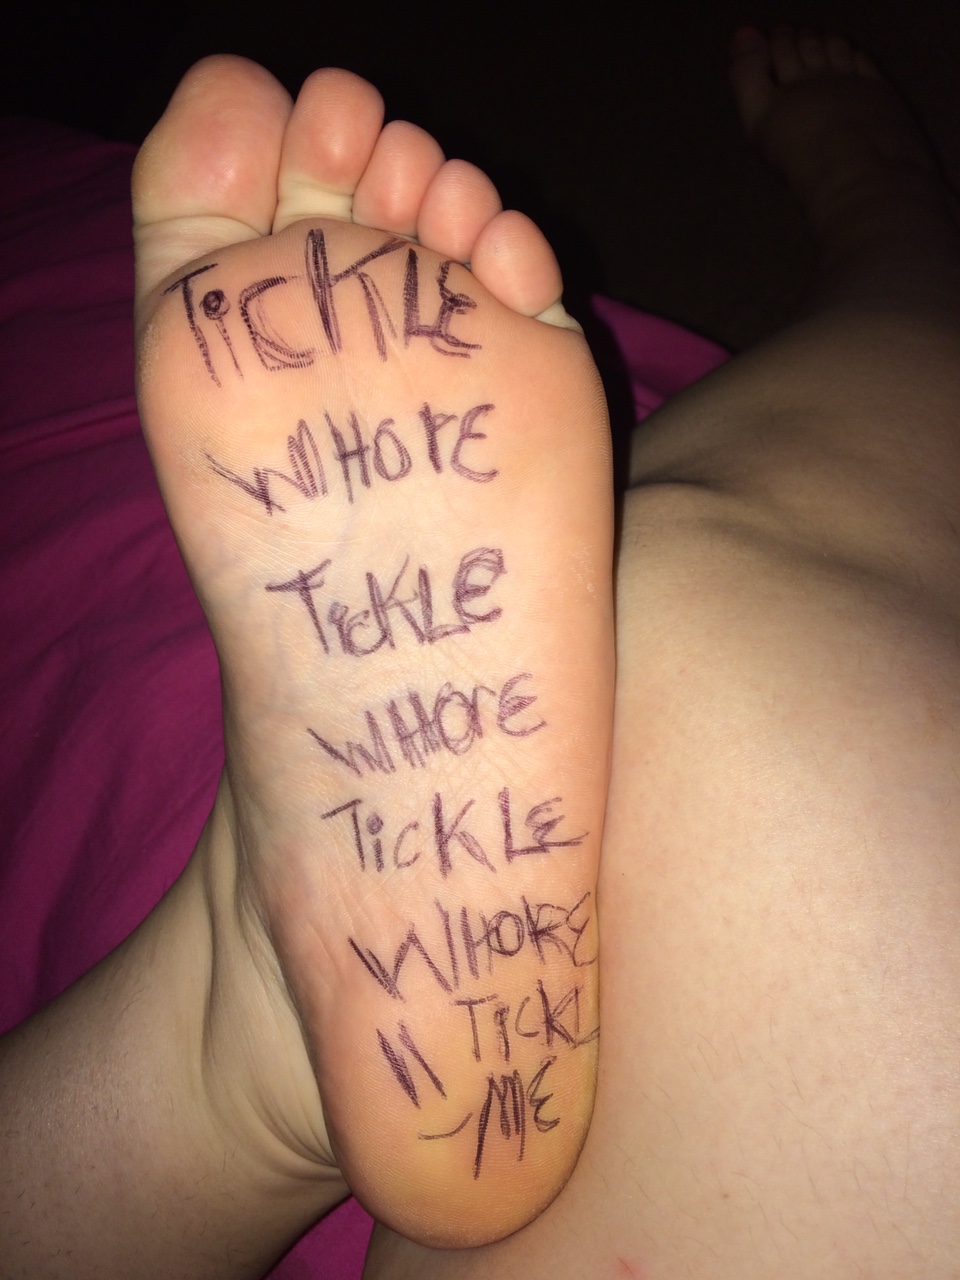 TicKLE
WHOrE
TicKLE
WHOrE
TicKLE
WHORE
TicKL
ME